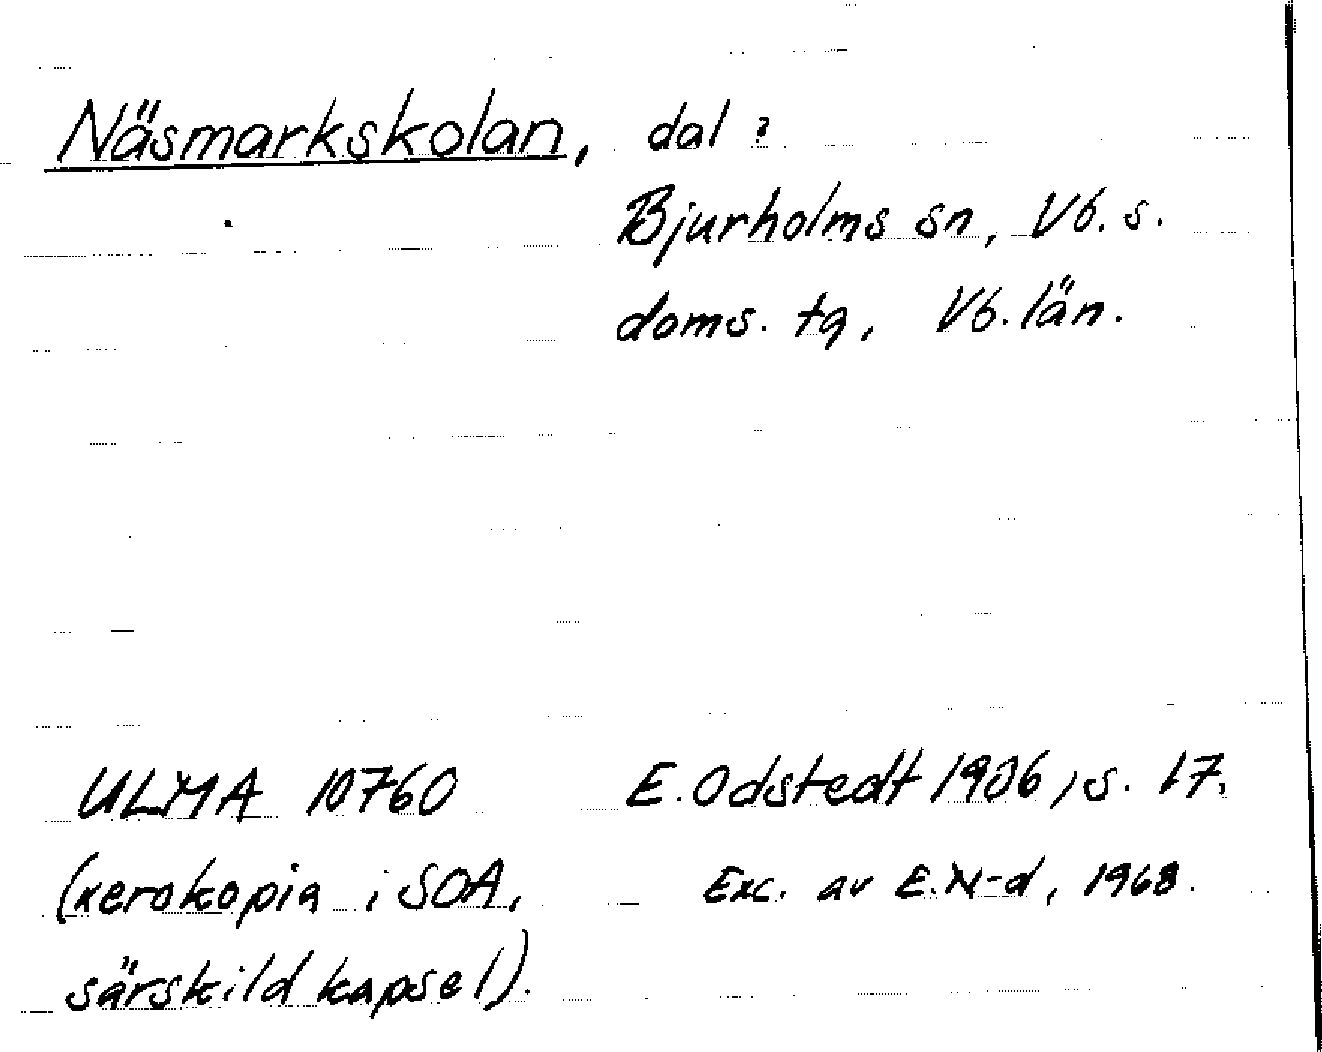 Näsmarkskolan, dal ?
Bjurholms sn, Vb. s.
doms. tg, Vb. län.
ULMA 10760 E. Odstedt 1906, s. 17.
(xerokopia i SOA, Exc. av E. N-d, 1968.
särskild kapsel).